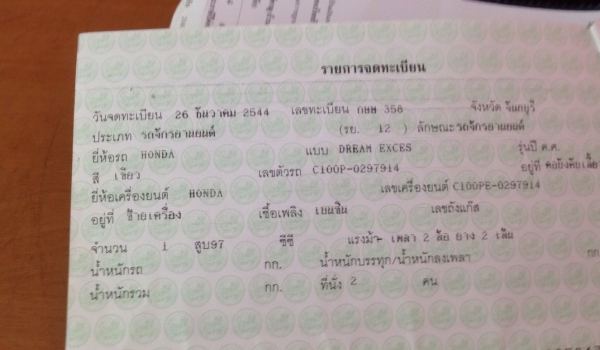 รายการจดทะเบียน
วันจดทะเบียน 26 ธันวาคม 2544 เลขทะเบียน กษษ 358 จังหวัด จันทบุรี
ประเภท รถจักรยานยนต์ (รย. 12 ) ลักษณะ รถจักรยานยนต์
ยี่ห้อรถ HONDA แบบ DREAM EXCES รุ่นปี ค.ศ.
สี เขียว เลขตัวรถ C100P-0297914 อยู่ที่ คอบังคับเลี้ย
ยี่ห้อเครื่องยนต์ HONDA เลขเครื่องยนต์ C100PE-0297914
อยู่ที่ ซ้ายเครื่อง เชื้อเพลิง เบนซิน เลขถังแก๊ส
จำนวน 1 สูบ 97 ซีซี แรงม้า - เพลา 2 ล้อ ยาง 2 เส้น
น้ำหนักรถ กก. น้ำหนักบรรทุก/น้ำหนักลงเพลา กก
น้ำหนักรวม กก. ที่นั่ง 2 คน